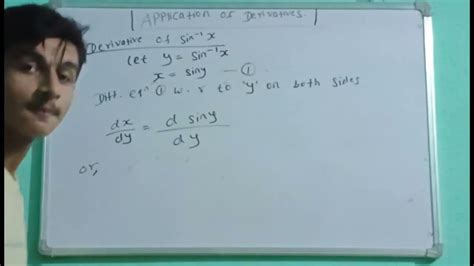 Application of Derivatives.
Derivative of sin⁻¹x
Let y = sin⁻¹x
x = siny — ①
Diff. eqⁿ ① w.r to 'y' on both sides
dx/dy = d siny/dy
or,